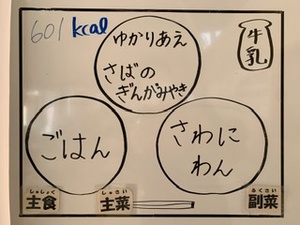 601 kcal
ゆかりあえ
さばの
ぎんがみやき
牛乳
ごはん
さわに
わん
しゅしょく
主食
しゅさい
主菜
ふくさい
副菜